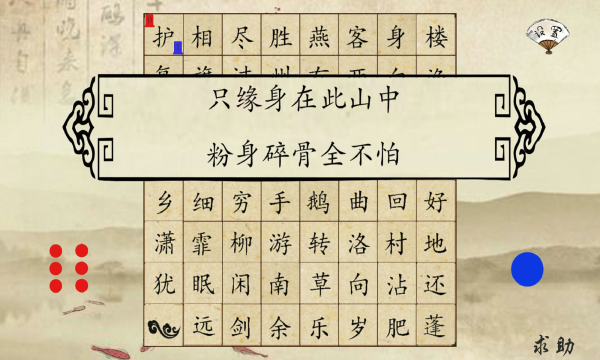 护相尽胜燕客身楼
设置
只缘身在此山中
粉身碎骨全不怕
乡细穷手鹅曲回好
潇霏柳游转洛村地
犹眠闲南草向沾还
远剑余乐岁肥蓬
求助